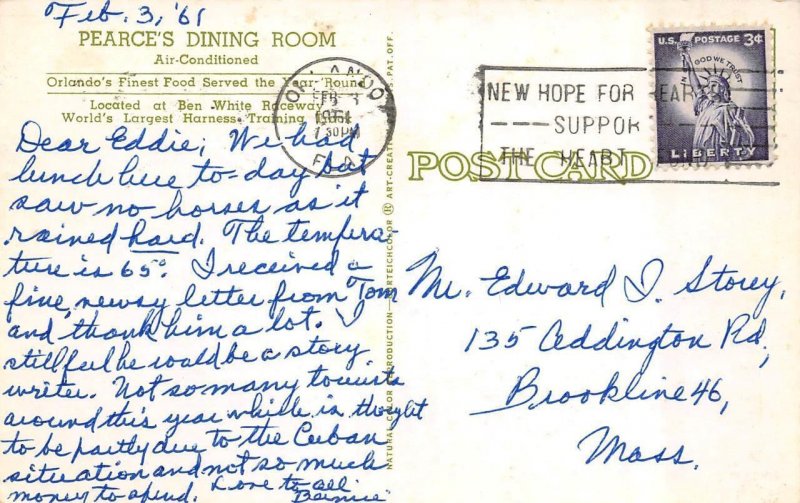 Feb. 3, '61
PEARCE'S DINING ROOM
Air-Conditioned
Orlando's Finest Food Served the Year 'Round
Located at Ben White Raceway
World's Largest Harness Training
Dear Eddie; We had
lunch here to-day but
saw no horses as it
rained hard. The tempera-
ture is 65°. I received a
fine, newsy letter from Tom
and thank him a lot. I
still feel he would be a story
writer. Not so many tourists
around this year which is thought
to be partly due to the Cuban
situation and not so much
money to spend. Love to all
Bernice
NATURAL COLOR REPRODUCTION
PAT. OFF.
ORLANDO
FEB 3
1961
1 30 PM
FLA
NEW HOPE FOR HEARTS
SUPPOR
THE HEART
U.S. POSTAGE 3¢
IN GOD WE TRUST
LIBERTY
POST CARD
Mr. Edward I. Storey,
135 Addington Rd,
Brookline 46,
Mass.